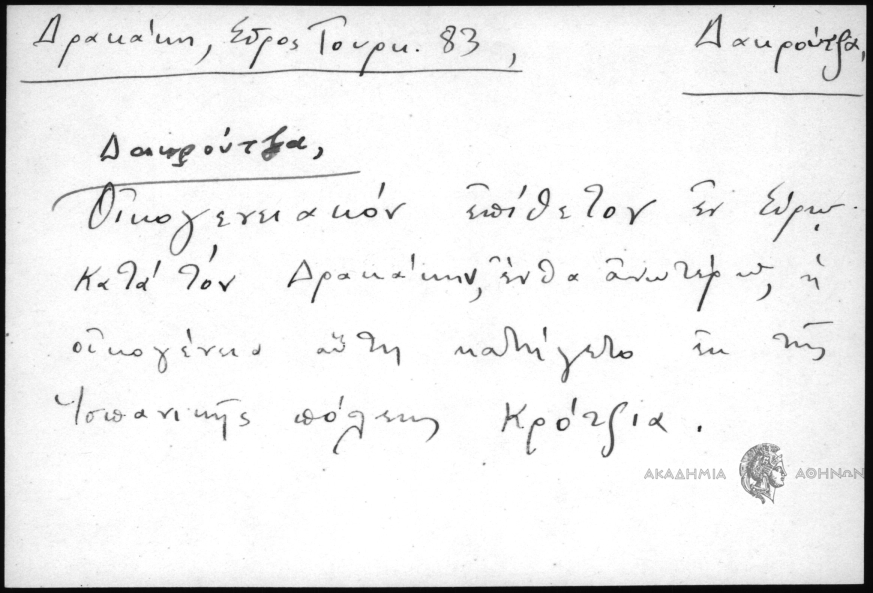 Δρακάκη, Σῦρος Τουρκ. 83, Δακρούτζα,
Δακρούτζα,
Οἰκογενειακόν ἐπίθετον ἐν Σύρῳ.
Κατά τόν Δρακάκην, ἔνθα ἀνωτέρω, ἡ
οἰκογένεια αὕτη κατήγετο ἐκ τῆς
Ἱσπανικῆς πόλεως Κρότζια.
ΑΚΑΔΗΜΙΑ ΑΘΗΝΩΝ